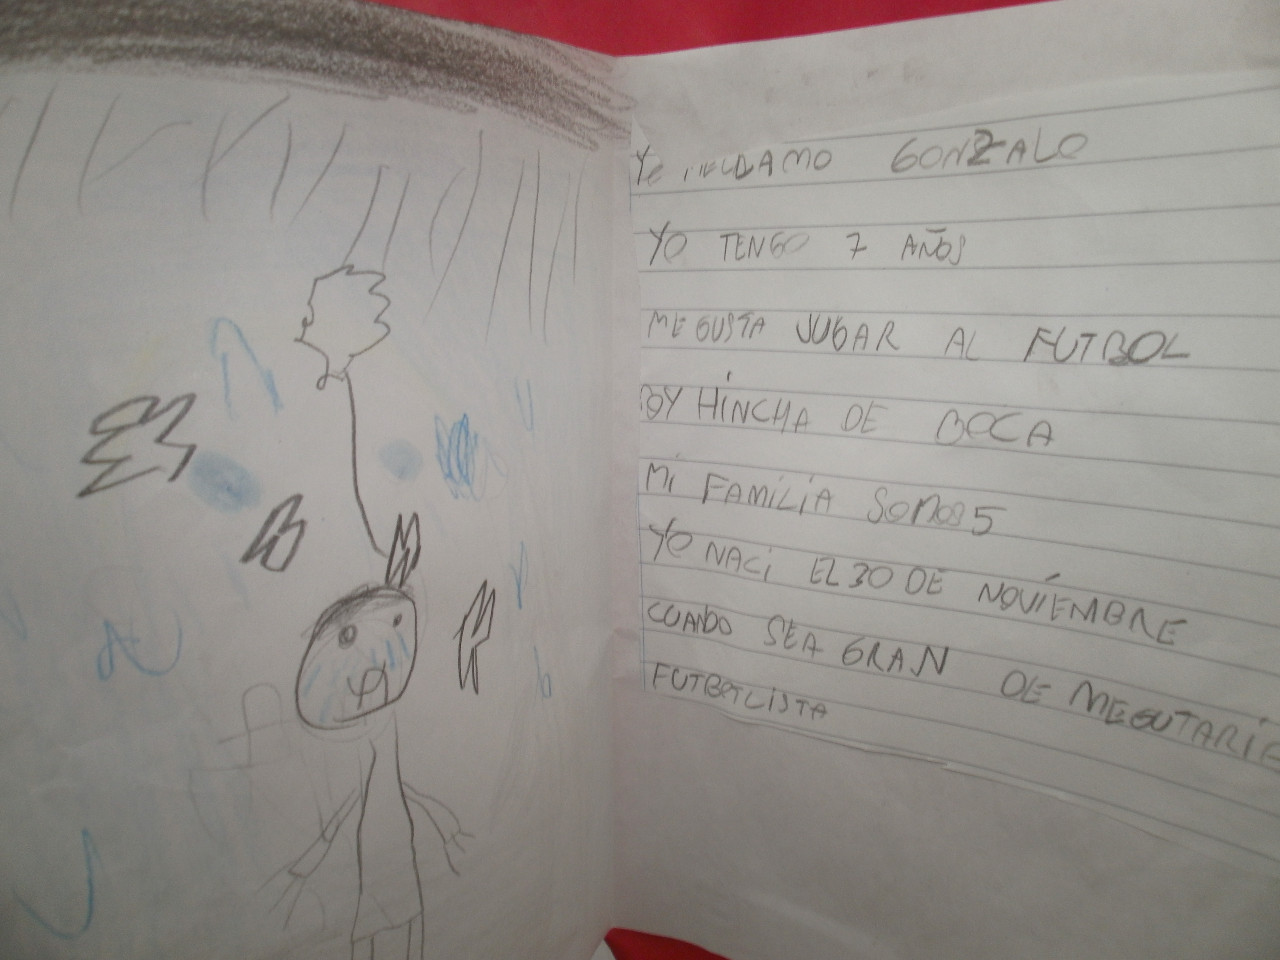 YO ME LLAMO GONZALO
YO TENGO 7 AÑOS
ME GUSTA JUGAR AL FUTBOL
SOY HINCHA DE BOCA
MI FAMILIA SOMOS 5
YO NACI EL 30 DE NOVIEMBRE
CUANDO SEA GRAN DE MEGUTARIA
FUTBTLISTA